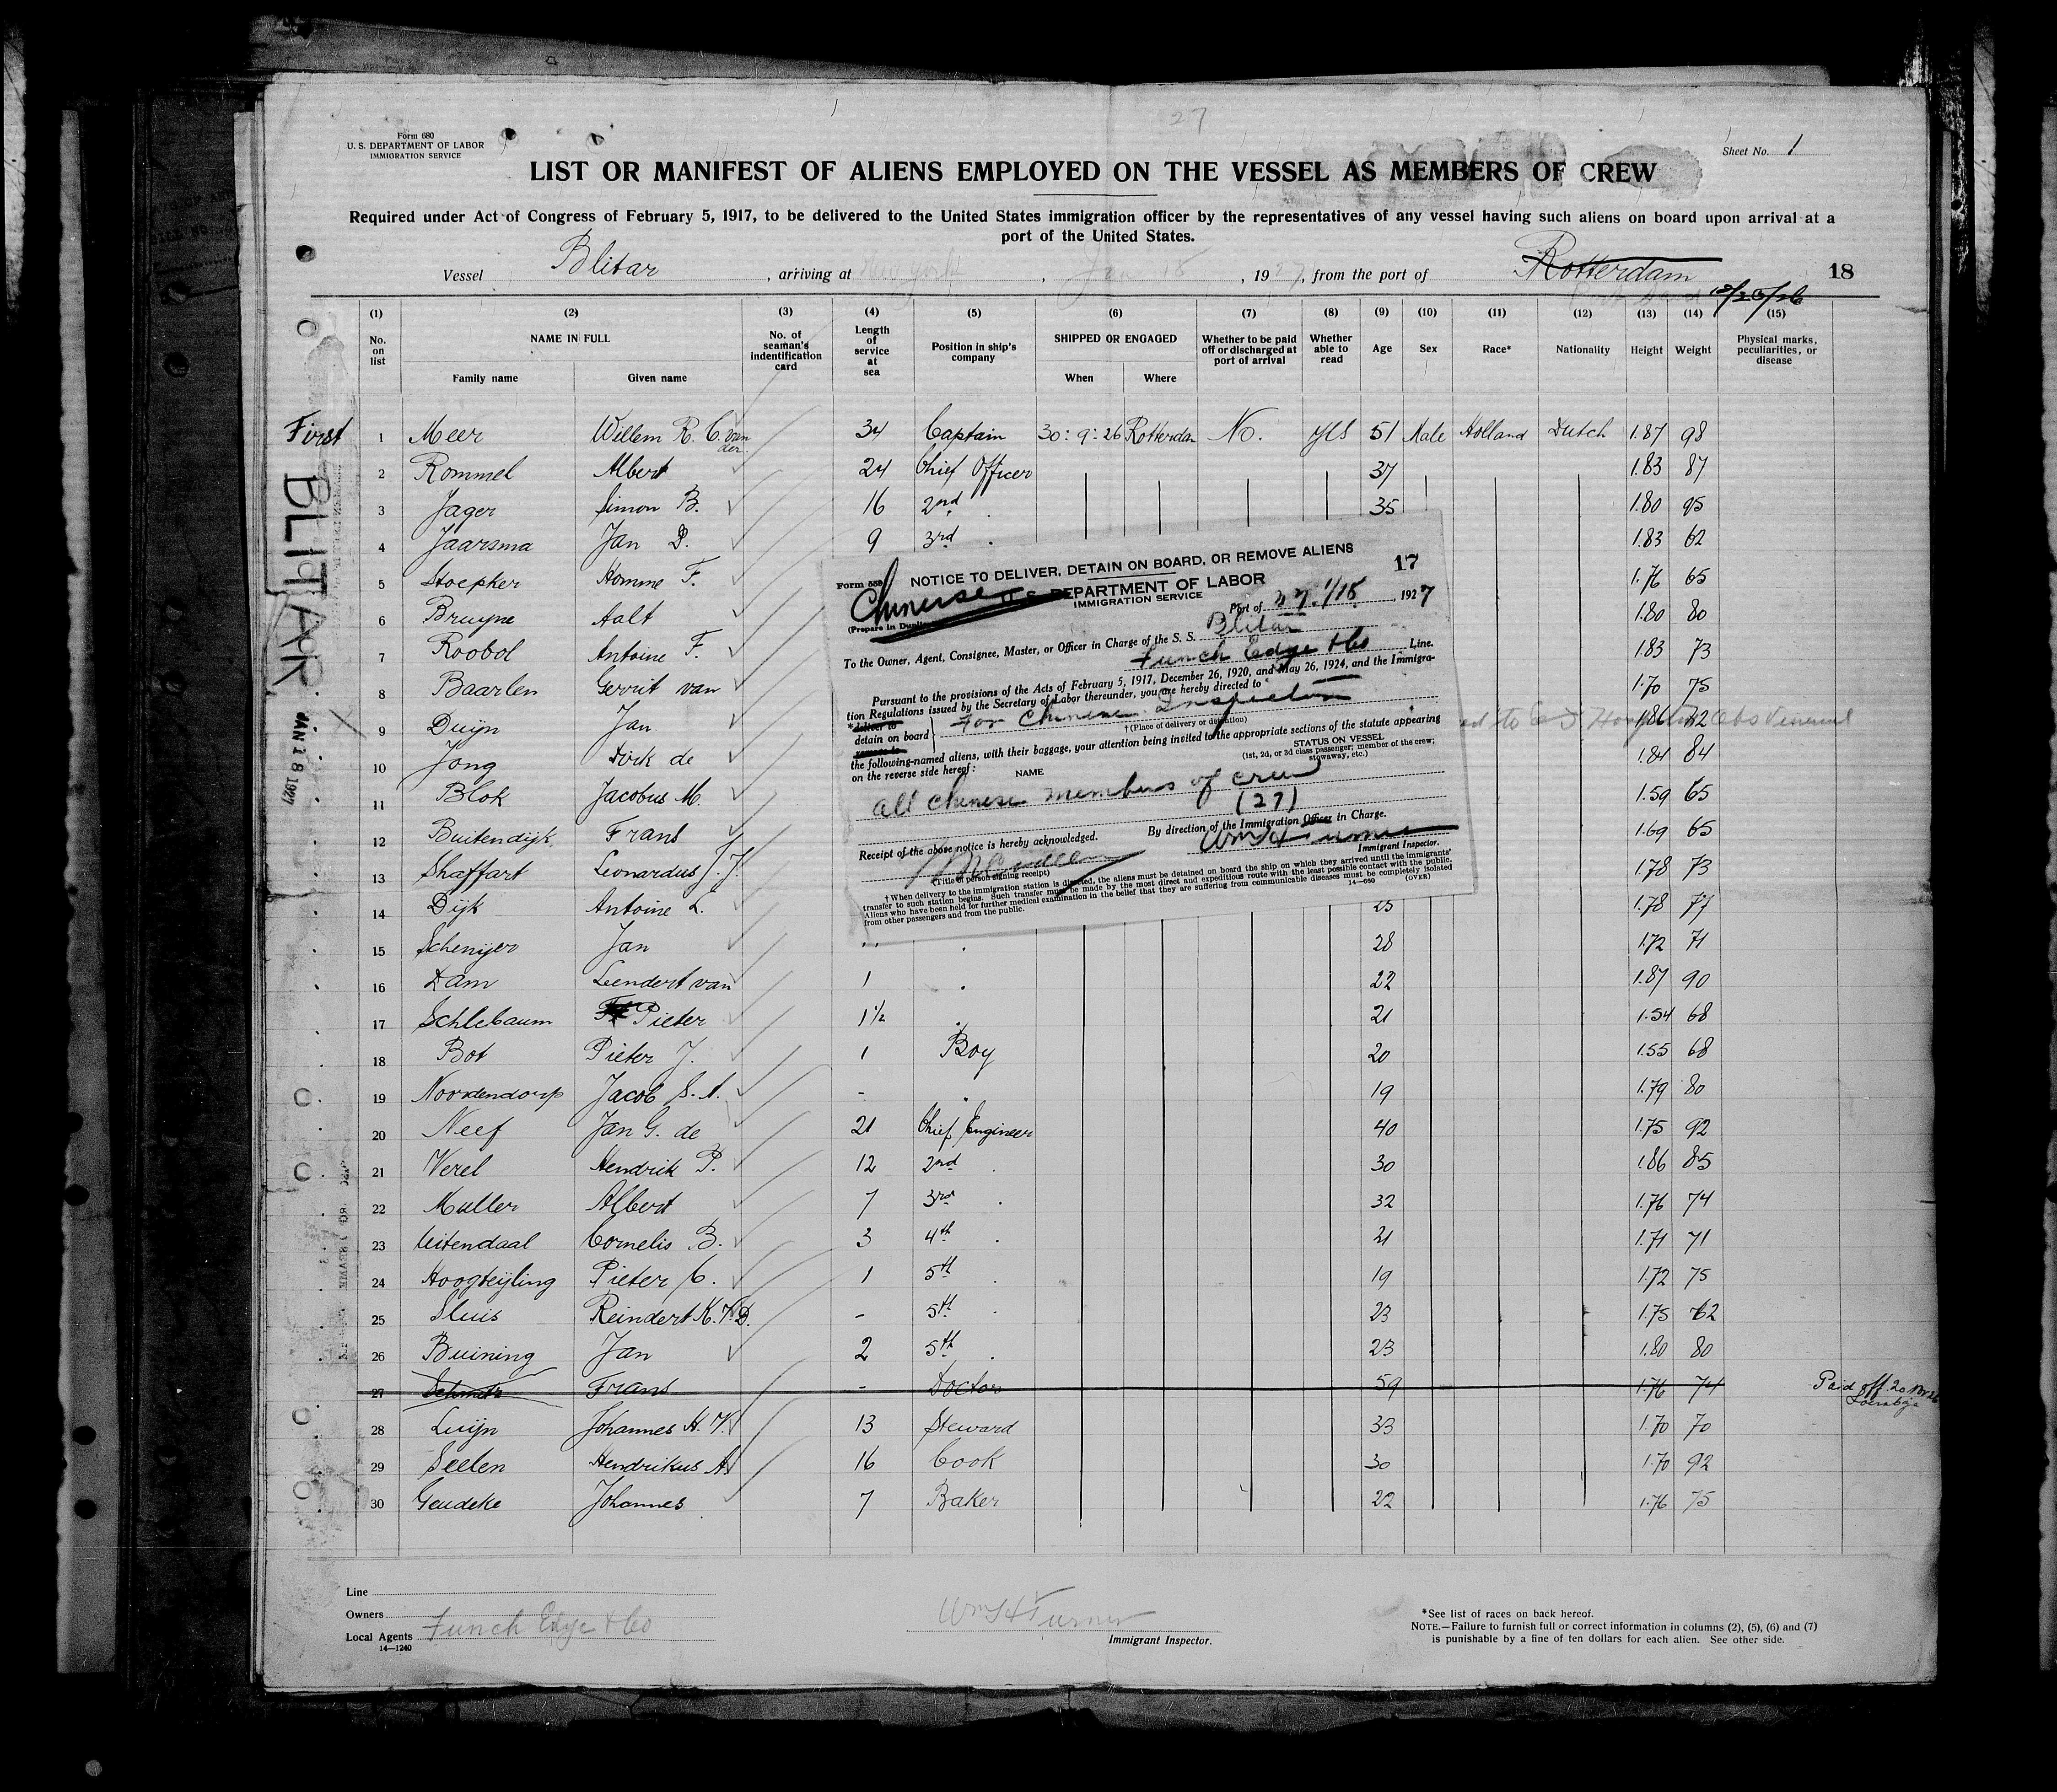 27
Form 680
U. S. DEPARTMENT OF LABOR
IMMIGRATION SERVICE
Sheet No. 1
LIST OR MANIFEST OF ALIENS EMPLOYED ON THE VESSEL AS MEMBERS OF CREW
Required under Act of Congress of February 5, 1917, to be delivered to the United States immigration officer by the representatives of any vessel having such aliens on board upon arrival at a
port of the United States.
Vessel Blitar, arriving at New York, Jan 18, 1927, from the port of Rotterdam 18
(1) (2) (3) (4) (5) (6) (7) (8) (9) (10) (11) (12) (13) (14) (15)
No. on list NAME IN FULL No. of seaman's indentification card Length of service at sea Position in ship's company SHIPPED OR ENGAGED Whether to be paid off or discharged at port of arrival Whether able to read Age Sex Race* Nationality Height Weight Physical marks, peculiarities, or disease
Family name Given name When Where
First
BLITAR
JAN 18 1927
1 Meer Willem R. C. van der 34 Captain 30:9:26 Rotterdam No. yes 51 Male Holland Dutch 1.87 98
2 Rommel Albert 24 Chief Officer 37 1.83 87
3 Jager Simon B. 16 2nd 35 1.80 95
4 Jaarsma Jan D. 9 3rd 1.83 62
5 Stoepker Homme F. 1.76 65
6 Bruyne Aalt 1.80 80
7 Roobol Antoine F. 1.83 73
8 Baarlen Gerrit van 1.70 75
9 Duijn Jan 1.86
10 Jong Dirk de 1.84 84
11 Blok Jacobus M. 1.59 65
12 Buitendijk Frans 1.69 65
13 Shaffart Leonardus J. 1.78 73
14 Dijk Antoine L. 1.78 77
15 Schenijer Jan 28 1.72 71
16 Dam Leendert van 1 22 1.87 90
17 Schlebaum Pieter 1½ 21 1.54 68
18 Bot Pieter J. 1 Boy 20 1.55 68
19 Noordendorp Jacob S. A. - 19 1.79 80
20 Neef Jan G. de 21 Chief Engineer 40 1.75 92
21 Verel Hendrik P. 12 2nd 30 1.86 85
22 Muller Albert 7 3rd 32 1.76 74
23 Uitendaal Cornelis B. 3 4th 21 1.71 71
24 Hoogteijling Pieter C. 1 5th 19 1.72 75
25 Sluis Reindert K. - 5th 23 1.75 62
26 Buining Jan 2 5th 23 1.80 80
27 Schmitz Frans - Doctor 59 1.76 74 Paid off
28 Luijn Johannes H. V. 13 Steward 33 1.70 70
29 Seelen Hendrikus A. 16 Cook 30 1.70 92
30 Geudeke Johannes 7 Baker 22 1.76 75
Form 559
NOTICE TO DELIVER, DETAIN ON BOARD, OR REMOVE ALIENS 17
Chinese
U. S. DEPARTMENT OF LABOR
IMMIGRATION SERVICE
(Prepare in Duplicate)
Port of N.Y. 1/18, 1927
To the Owner, Agent, Consignee, Master, or Officer in Charge of the S. S. Blitar
Funch Edye & Co Line.
Pursuant to the provisions of the Acts of February 5, 1917, December 26, 1920, and May 26, 1924, and the Immigra-
tion Regulations issued by the Secretary of Labor thereunder, you are hereby directed to
*deliver to
detain on board
remove to
For Chinese Inspection
†(Place of delivery or detention)
the following-named aliens, with their baggage, your attention being invited to the appropriate sections of the statute appearing
on the reverse side hereof:
NAME
STATUS ON VESSEL
(1st, 2d, or 3d class passenger; member of the crew; stowaway, etc.)
all Chinese members of crew
(27)
By direction of the Immigration Officer in Charge.
Receipt of the above notice is hereby acknowledged.
Wm H Turner
Immigrant Inspector.
(Title of person signing receipt)
† When delivery to the immigration station is directed, the aliens must be detained on board the ship on which they arrived until the immigrants'
transfer to such station begins. Such transfer must be made by the most direct and expeditious route with the least possible contact with the public.
Aliens who have been held for further medical examination in the belief that they are suffering from communicable diseases must be completely isolated
from other passengers and from the public.
14—660 (OVER)
Line
Owners
Local Agents Funch Edye & Co
14—1240
Wm H Turner
Immigrant Inspector.
*See list of races on back hereof.
NOTE.—Failure to furnish full or correct information in columns (2), (5), (6) and (7)
is punishable by a fine of ten dollars for each alien. See other side.